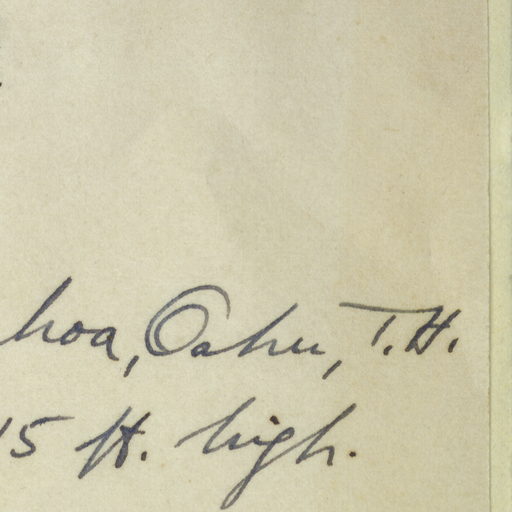 hoa, Oahu, T.H.
15 ft. high.